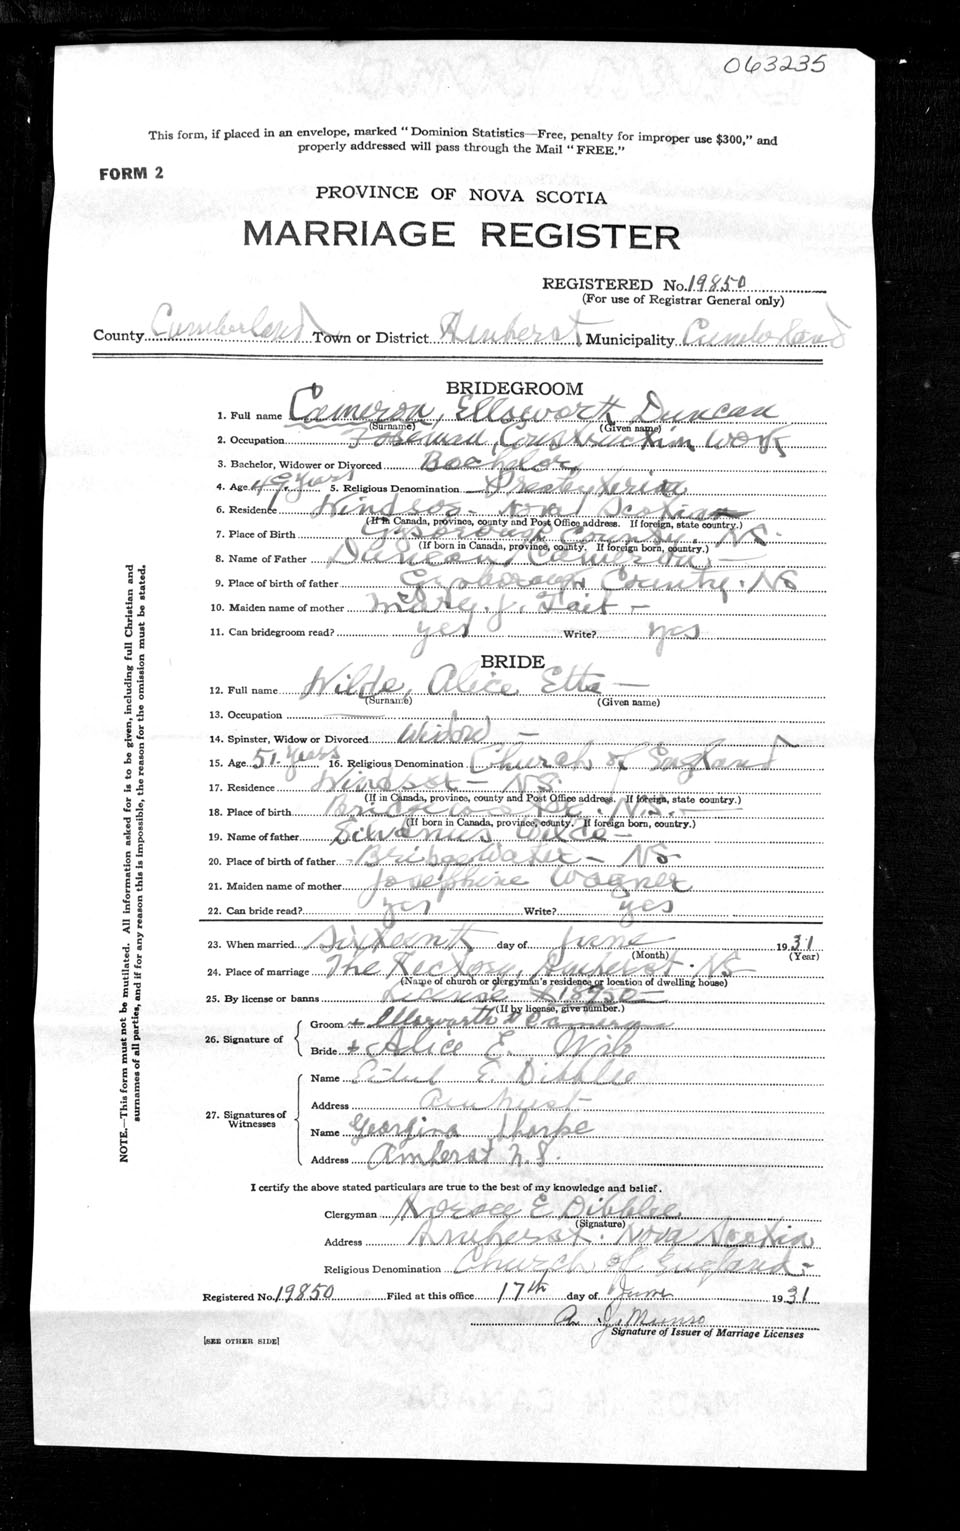 063235
This form, if placed in an envelope, marked "Dominion Statistics—Free, penalty for improper use $300," and
properly addressed will pass through the Mail "FREE."
FORM 2
PROVINCE OF NOVA SCOTIA
MARRIAGE REGISTER
REGISTERED No. 19850
(For use of Registrar General only)
County Cumberland Town or District Amherst Municipality Cumberland
BRIDEGROOM
1. Full name Cameron, Ellsworth Duncan
(Surname) (Given name)
2. Occupation Foreman Construction Work
3. Bachelor, Widower or Divorced Bachelor
4. Age 49 years 5. Religious Denomination Presbyterian
6. Residence Windsor - Nova Scotia
(If in Canada, province, county and Post Office address. If foreign, state country.)
7. Place of Birth Guysborough County. NS.
(If born in Canada, province, county. If foreign born, country.)
8. Name of Father Duncan Cameron —
9. Place of birth of father Guysborough County. NS
10. Maiden name of mother Mary. J. Tait —
11. Can bridegroom read? yes Write? yes
BRIDE
12. Full name Wilde, Alice Etta —
(Surname) (Given name)
13. Occupation —
14. Spinster, Widow or Divorced Widow —
15. Age 51 years 16. Religious Denomination Church of England
17. Residence Windsor - NS.
(If in Canada, province, county and Post Office address. If foreign, state country.)
18. Place of birth Bridgewater, NS.
(If born in Canada, province, county. If foreign born, country.)
19. Name of father Silvanus Wilde —
20. Place of birth of father Bridgewater - NS
21. Maiden name of mother Josephine Wagner
22. Can bride read? yes Write? yes
23. When married Sixteenth day of June 1931
(Month) (Year)
24. Place of marriage The Rectory, Amherst. NS
(Name of church or clergyman's residence or location of dwelling house)
25. By license or banns License # 18950
(If by license, give number.)
26. Signature of
Groom + Ellsworth D Cameron
Bride + Alice E. Wile
27. Signatures of
Witnesses
Name E. Dibblee
Address Amherst
Name Georgina Thorpe
Address Amherst N.S.
I certify the above stated particulars are true to the best of my knowledge and belief.
Clergyman Horace E Dibblee
(Signature)
Address Amherst. Nova Scotia
Religious Denomination Church of England -
Registered No. 19850 Filed at this office 17th day of June 1931
A. J. Munro
Signature of Issuer of Marriage Licenses
[SEE OTHER SIDE]
NOTE.—This form must not be mutilated. All information asked for is to be given, including full Christian and
surnames of all parties, and if for any reason this is impossible, the reason for the omission must be stated.